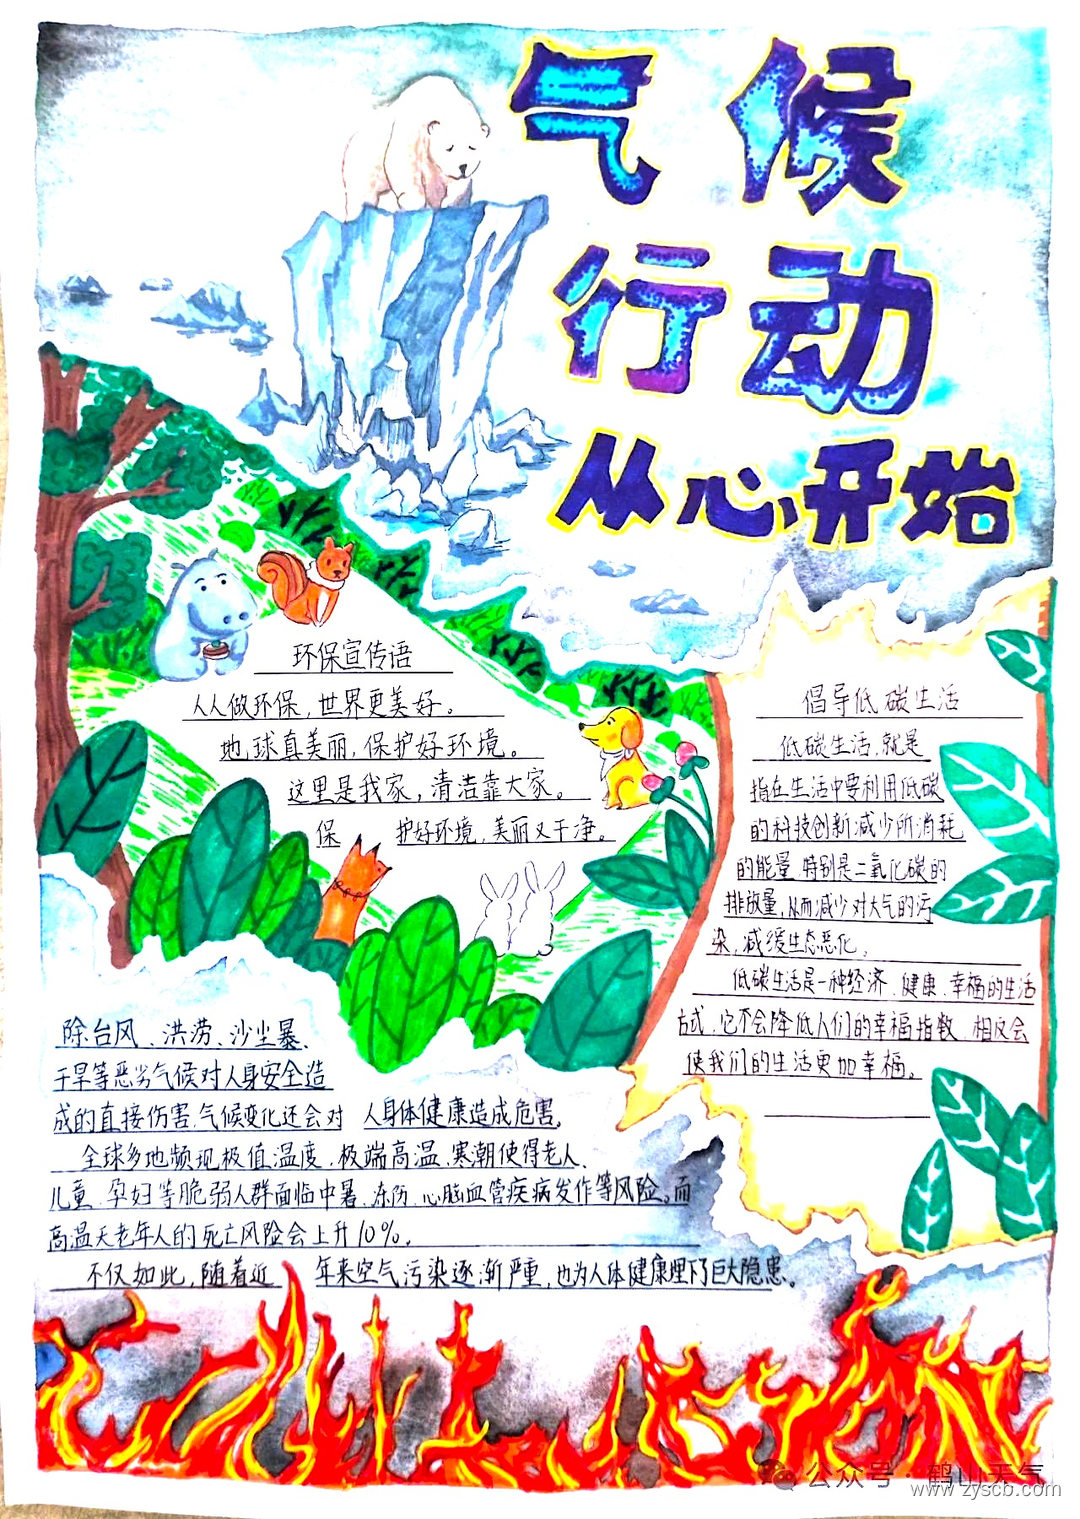 气候
行动
从心开始
环保宣传语
人人做环保,世界更美好。
地球真美丽,保护好环境。
这里是我家,清洁靠大家。
保 护好环境,美丽又干净。
倡导低碳生活
低碳生活,就是
指在生活中要利用低碳
的科技创新减少所消耗
的能量,特别是二氧化碳的
排放量,从而减少对大气的污
染,减缓生态恶化。
低碳生活是一种经济、健康、幸福的生活
方式,它不会降低人们的幸福指数,相反会
使我们的生活更加幸福。
除台风、洪涝、沙尘暴、
干旱等恶劣气候对人身安全造
成的直接伤害,气候变化还会对 人身体健康造成危害。
全球多地频现极值温度,极端高温、寒潮使得老人、
儿童、孕妇等脆弱人群面临中暑、冻伤、心脑血管疾病发作等风险。而
高温天老年人的死亡风险会上升10%。
不仅如此,随着近 年来空气污染逐渐严重,也为人体健康埋下了巨大隐患。
公众号·鹤山天气
www.zyscb.com